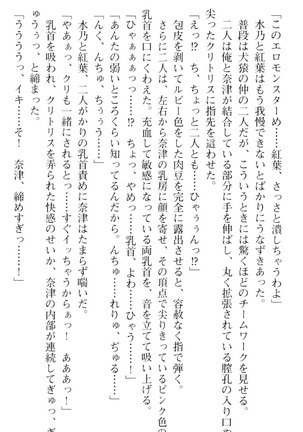 「このエロモンスターめ……紅葉、さっさと潰しちゃうわよ」
水乃と紅葉はもう我慢できないとばかりにうなずきあった。
普段は犬猿の仲の二人だが、こういうときには驚くほどのチームワークを見せる。
二人は俺と奈津が結合している部分に手を伸ばし、丸く拡張されている膣孔の入り口や
尖ったクリトリスに指先を這わせた。
「えっ!?　ちょ、ちょっと二人とも……ひゃぅぅんっ!?」
包皮を剥いてルビー色をした肉豆を完全に露出させると、容赦なく指で弾く。
さらに二人は、左右から奈津の乳房に顔を寄せ、その頂点で尖りきっているピンク色の
乳首を口にくわえた。充血して敏感になっている両乳首を、音を立てて吸い上げる。
「ひゃぁぁぁっ……!?　ちょっ、やめっ……乳首、よわ……ひゃうっ!?」
「あんたの弱いところくらい知ってるんだから。んちゅ……れりゅ、ぢゅる……」
「んく、んちゅ、ちぅぅ……」
「やぁぁっ、クリも一緒にされるとっ……すぐイっちゃうからぁっ！　あああっ！」
水乃と紅葉、二人がかりの乳首責めに奈津はたまらず喘いだ。
乳首を吸われ、クリトリスを弄られた快感のせいか、奈津の内部が連続してぎゅっ、ぎ
ゅうぅっ、と締まった。
「うううっ、イキ……そ！　奈津、締めすぎっ……！」